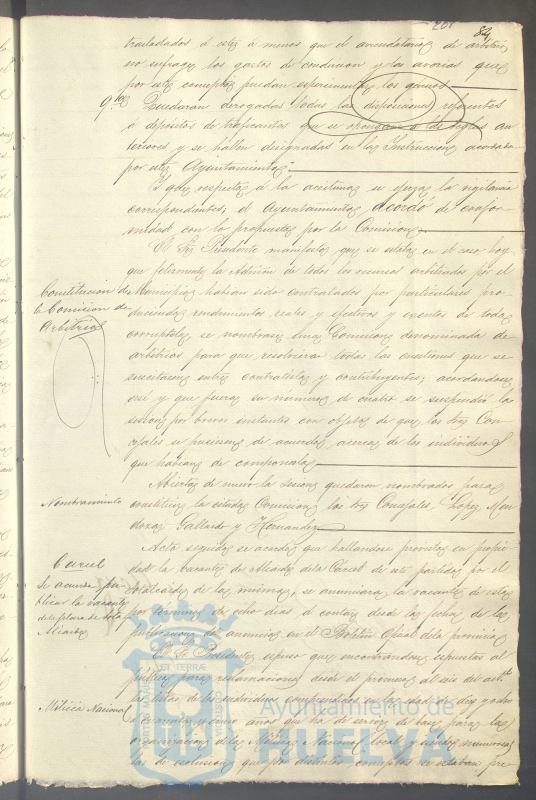 201
84
trasladados á estos á menos que el arrendatario de arbitrios
no sufrague los gastos de conduccion y las averias que
por este concepto puedan esperimentar los géneros
9º Quedaran derogadas todas las disposiciones referentes
á depósitos de traficantes que se opongan á las reglas an
teriores y se hallen designadas en la Instruccion acordada
por este Ayuntamiento
Y que respecto á la aceituna se ejerza la vigilancia
correspondiente; el Ayuntamiento acordó de confor-
midad con lo propuesto por la Comision
El Sr. Presidente manifestó que se estaba en el caso hoy
que la de todos los recursos arbitrados por el
Constitucion de
la Comision de
Arbitrios
Municipio habian sido contratados por particulares pro-
duciendo rendimientos reales y efectivos y exentos de toda
se nombrase una Comision denominada de
arbitrios para que resolviera todas las cuestiones que se
suscitasen entre contratistas y contribuyentes; acordandose
asi y que fuera su número de cuatro se suspendió la
sesion por breves instantes con objeto de que los Sres Con-
cejales se pusiesen de acuerdo acerca de los individuos
que habian de componerla
Nombramiento
Abierta de nuevo la sesion quedaron nombrados para
constituir la citada Comision los Sres Concejales, Lopez, Men
doza, Gallardo y Hernandez
Carcel
Se acuerda pu-
blicar la vacante
de la plaza de
Alcaide
Acto seguido se acordó que hallandose provista en propie
dad la vacante de Alcaide de la Carcel de este partido por el
de la misma, se anunciara la vacante de esta
por término de ocho dias á contar desde la fecha de la
publicacion de anuncios en el Boletin Oficial de la provincia
El Sr. Presidente espuso que encontrandose espuestas al
público para reclamaciones desde el primero al seis del actual
Milicia Nacional
las listas de los individuos comprendidos en la edad de diez y ocho
á cuarenta y cinco años que ha de servir de base para la
organizacion de la Milicia Nacional local y siendo numerosas
las de esclusion que por distintos conceptos se estaban pre
ET TERRÆ
Ayuntamiento de
HUELVA